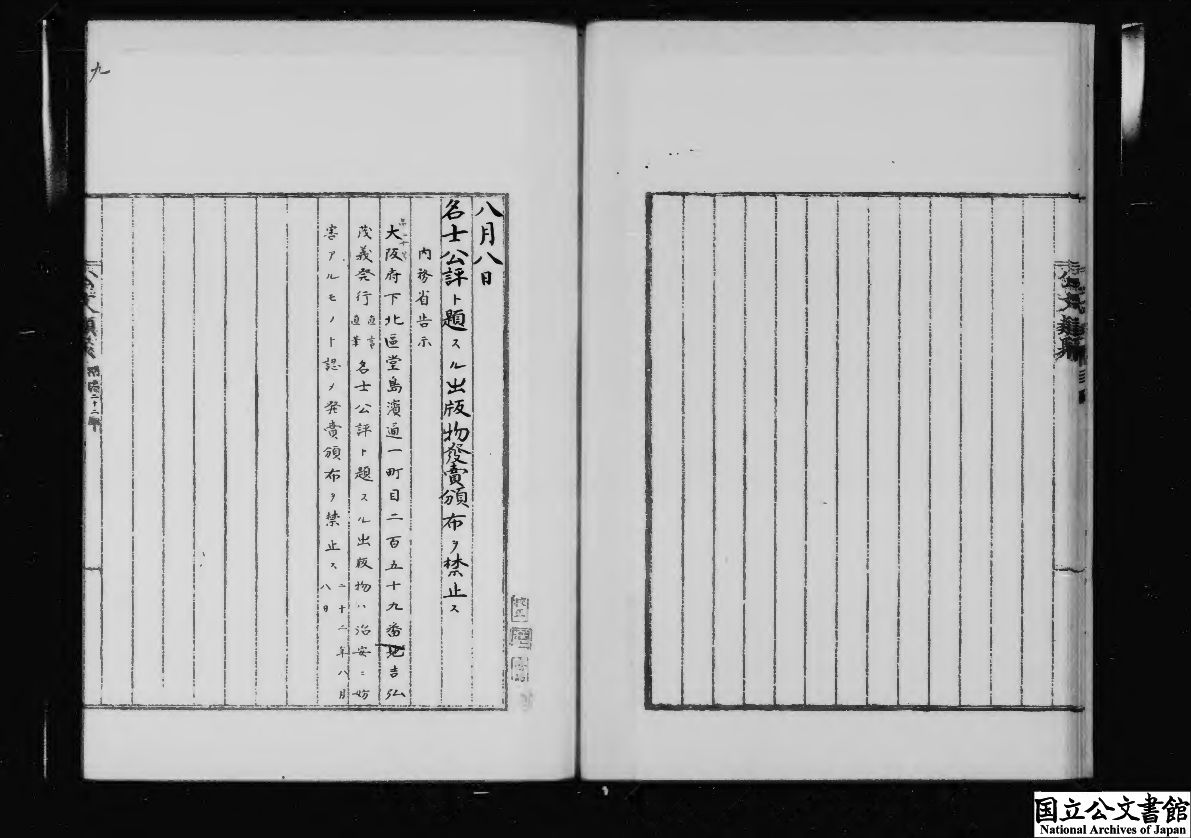 八月八日
名士公評ト題スル出版物發賣頒布ヲ禁止ス
内務省告示
大阪府下北區堂島濱通一町目二百五十九番地吉弘
茂義発行 名士公評ト題スル出版物ハ治安ニ妨
害アルモノト認メ発賣頒布ヲ禁止ス 二十二年八月
八日
九
公文類聚
明治二十二年
国立公文書館
National Archives of Japan